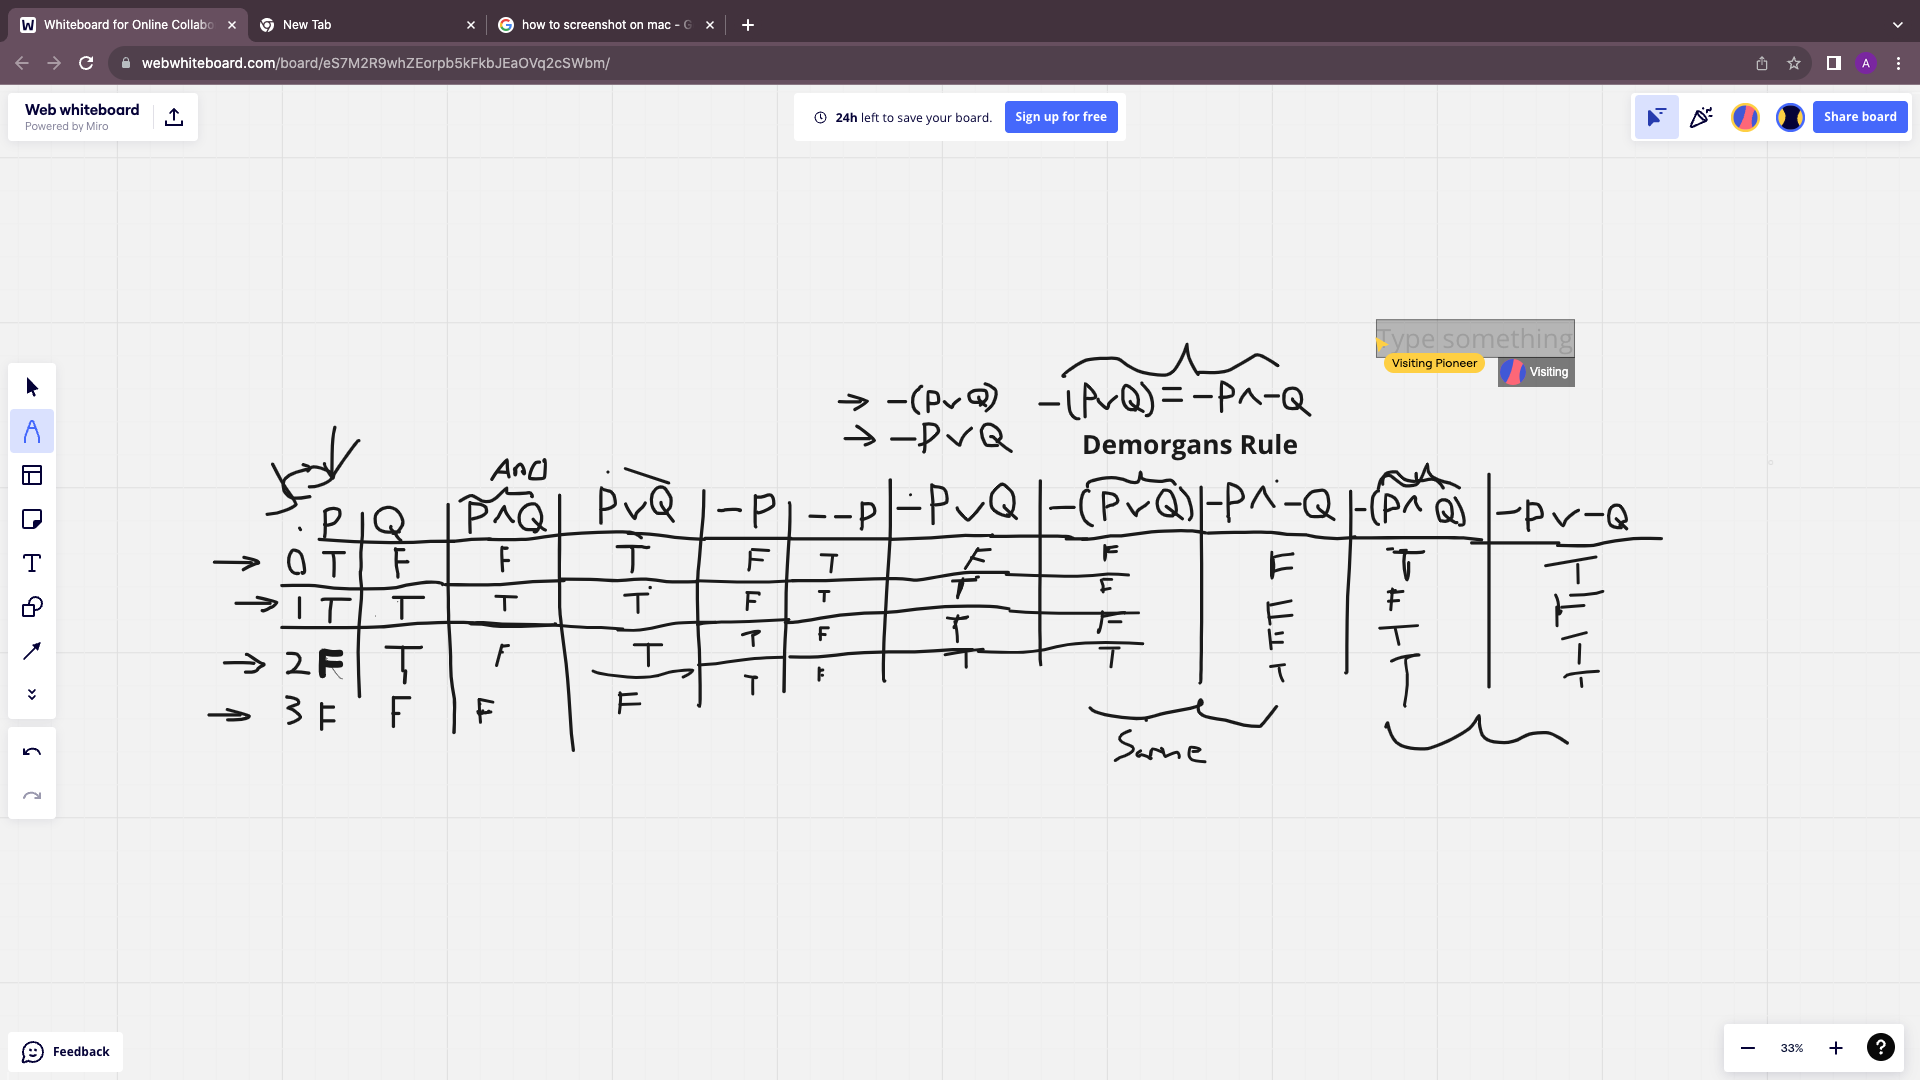 Whiteboard for Online Collabo
New Tab
how to screenshot on mac - G
webwhiteboard.com/board/eS7M2R9whZEorpb5kFkbJEaOVq2cSWbm/
A
Web whiteboard
Powered by Miro
24h left to save your board.
Sign up for free
Share board
Type something
Visiting Pioneer
Visiting
→ -(P∨Q) -(P∨Q) = -P∧-Q
→ -P∨Q
Demorgans Rule
And
P Q P∧Q P∨Q -P --P -P∨Q -(P∨Q) -P∧-Q -(P∧Q) -P∨-Q
→ 0 T F F T F T F F F T T
→ 1 T T T T F T T F F F F
→ 2 F T F T T F T F F T T
→ 3 F F F F T F T T T T T
Same
Feedback
33%
?